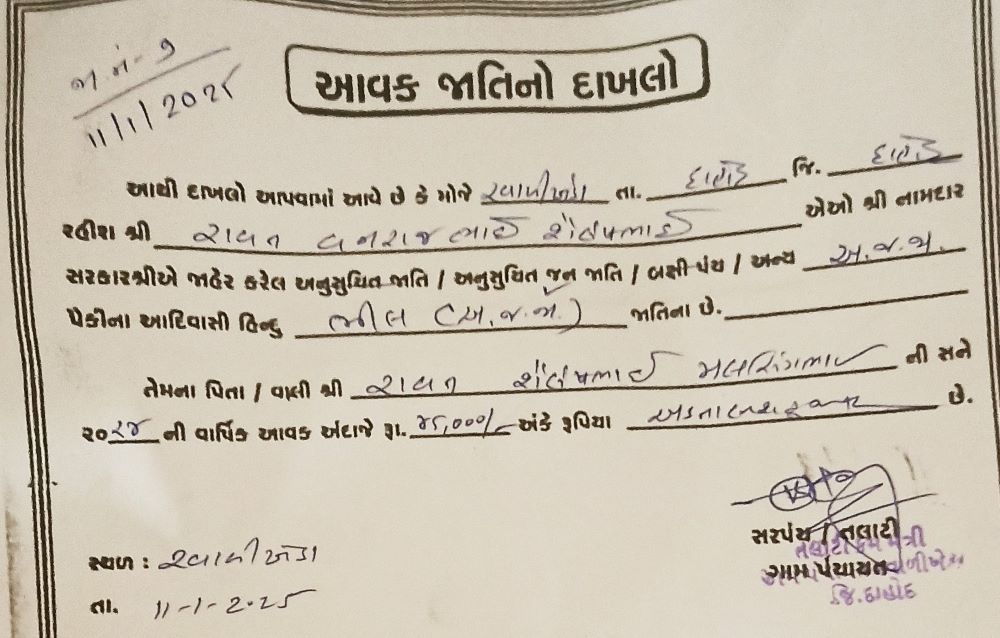 જા.નં-૭
૧૧/૧/૨૦૨૫
આવક જાતિનો દાખલો
આથી દાખલો આપવામાં આવે છે કે મોજે રવાળીખેડા તા. દાહોદ જિ. દાહોદ
રહીશ શ્રી રાવત વનરાજભાઈ શૈલેષભાઈ એઓ શ્રી નામદાર
સરકારશ્રીએ જાહેર કરેલ અનુસુચિત જાતિ / અનુસુચિત જન જાતિ / બક્ષી પંચ / અન્ય અ.જ.જા.
પૈકીના આદિવાસી હિન્દુ ભીલ (અ.જ.જા.) જાતિના છે.
તેમના પિતા / વાલી શ્રી રાવત શૈલેષભાઈ મલસિંગભાઈ ની સને
૨૦૨૪ ની વાર્ષિક આવક અંદાજે રૂા. ૪૮,૦૦૦/- અંકે રૂપિયા અડતાલીસ હજાર છે.
સરપંચ / તલાટી
તલાટી કમ મંત્રી
ગ્રામ પંચાયત
જિ.દાહોદ
સ્થળ : રવાળીખેડા
તા. ૧૧-૧-૨૦૨૫